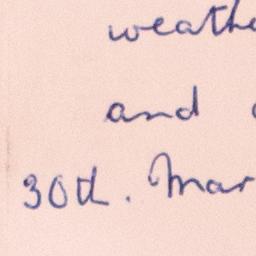 weathe
and
30th. Mar